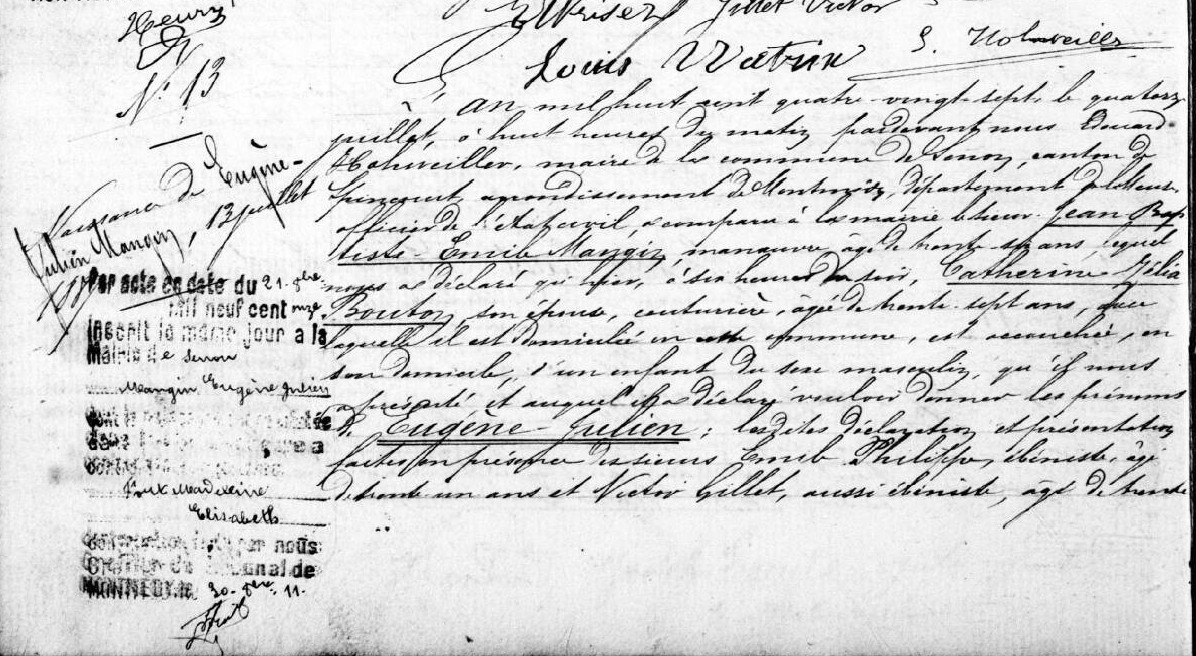 Gillet Victor
Louis Watrin
N° 13
Naissance de Eugène-
Julien Mangin, 13 juillet
L'an mil huit cent quatre-vingt-sept, le quatorze
juillet, à huit heures du matin, pardevant nous Edouard
maire de la commune de Senon, canton de
Spincourt, arrondissement de Montmédy, département de la Meuse,
officier de l'État civil, a comparu à la mairie le sieur Jean Bap
tiste-Emile Mangin, manœuvre, âgé de trente six ans, lequel
nous a déclaré qu'hier, à six heures du soir, Catherine Zélia
Bouton, son épouse, couturière, âgée de trente sept ans, avec
laquelle il est domicilié en cette commune, est accouchée, en
son domicile, d'un enfant du sexe masculin, qu'il nous
a présenté et auquel il a déclaré vouloir donner les prénoms
de Eugène-Julien; lesdites déclaration et présentation
faites en présence des sieurs Emile Philippe, ébéniste, âgé
de trente un ans et Victor Gillet, aussi ébéniste, âgé de trente
Par acte en date du 21 8bre
mil neuf cent onze
Inscrit le même jour à la
Mairie de Senon
Mangin Eugène Julien
Madeleine
Elisabeth
par nous
Greffier du Tribunal de
MONTMEDY, le 30-8bre 11.